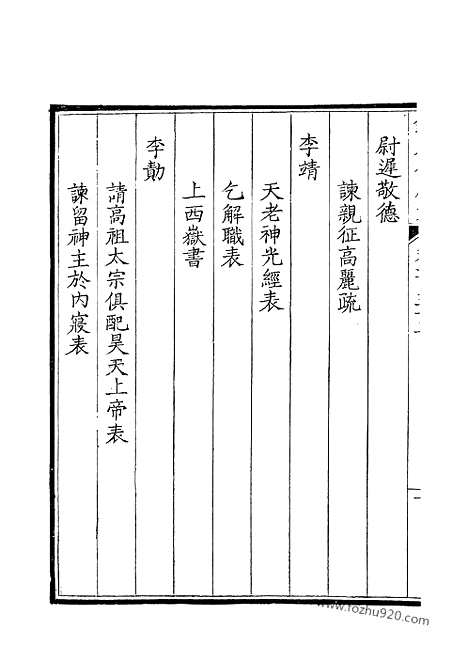 尉遲敬德
諫親征高麗疏
李靖
天老神光經表
乞解職表
上西嶽書
李勣
請高祖太宗俱配昊天上帝表
諫留神主於内寢表
www.fozhu920.com